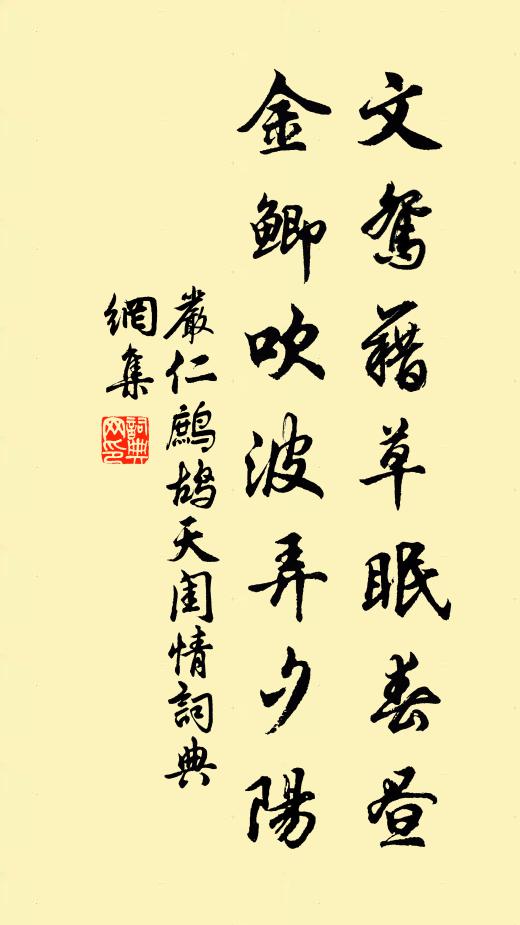 文鴛藉草眠春晝
金鯽吹波弄夕陽
嚴仁鷓鴣天閨情詞典
網集
詞典
网印